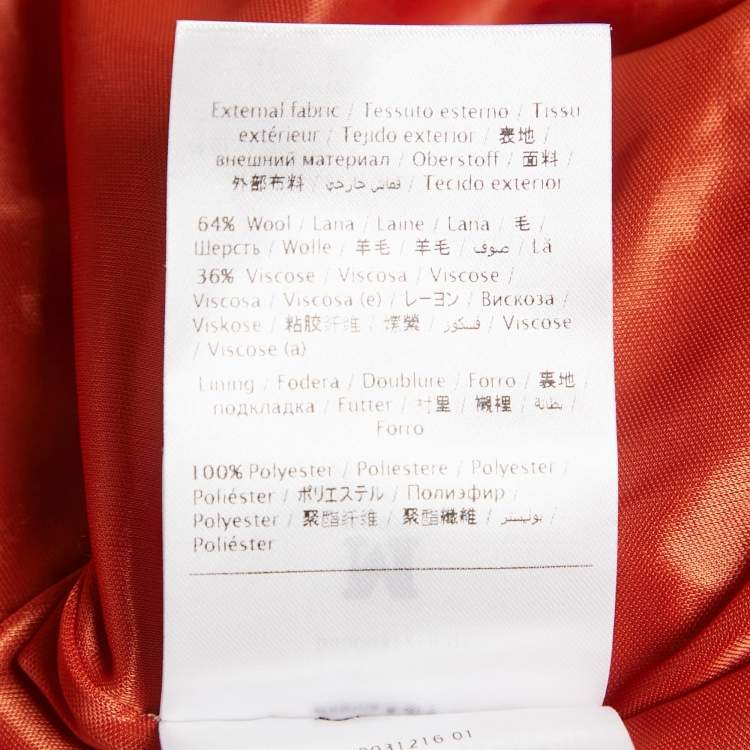 External fabric / Tessuto esterno / Tissu
extérieur / Tejido exterior / 表地 /
внешний материал / Oberstoff / 面料 /
外部布料 / قماش خارجي / Tecido exterior
64% Wool / Lana / Laine / Lana / 毛 /
Шерсть / Wolle / 羊毛 / 羊毛 / صوف / Lã
36% Viscose / Viscosa / Viscose /
Viscosa / Viscosa (e) / レーヨン / Вискоза /
Viskose / 粘胶纤维 / 嫘縈 / فسكوز / Viscose
/ Viscose (a)
Lining / Fodera / Doublure / Forro / 裏地 /
подкладка / Futter / 衬里 / 襯裡 / بطانة /
Forro
100% Polyester / Poliestere / Polyester /
Poliéster / ポリエステル / Полиэфир /
Polyester / 聚酯纤维 / 聚酯纖維 / بوليستر /
Poliéster
9031216 01